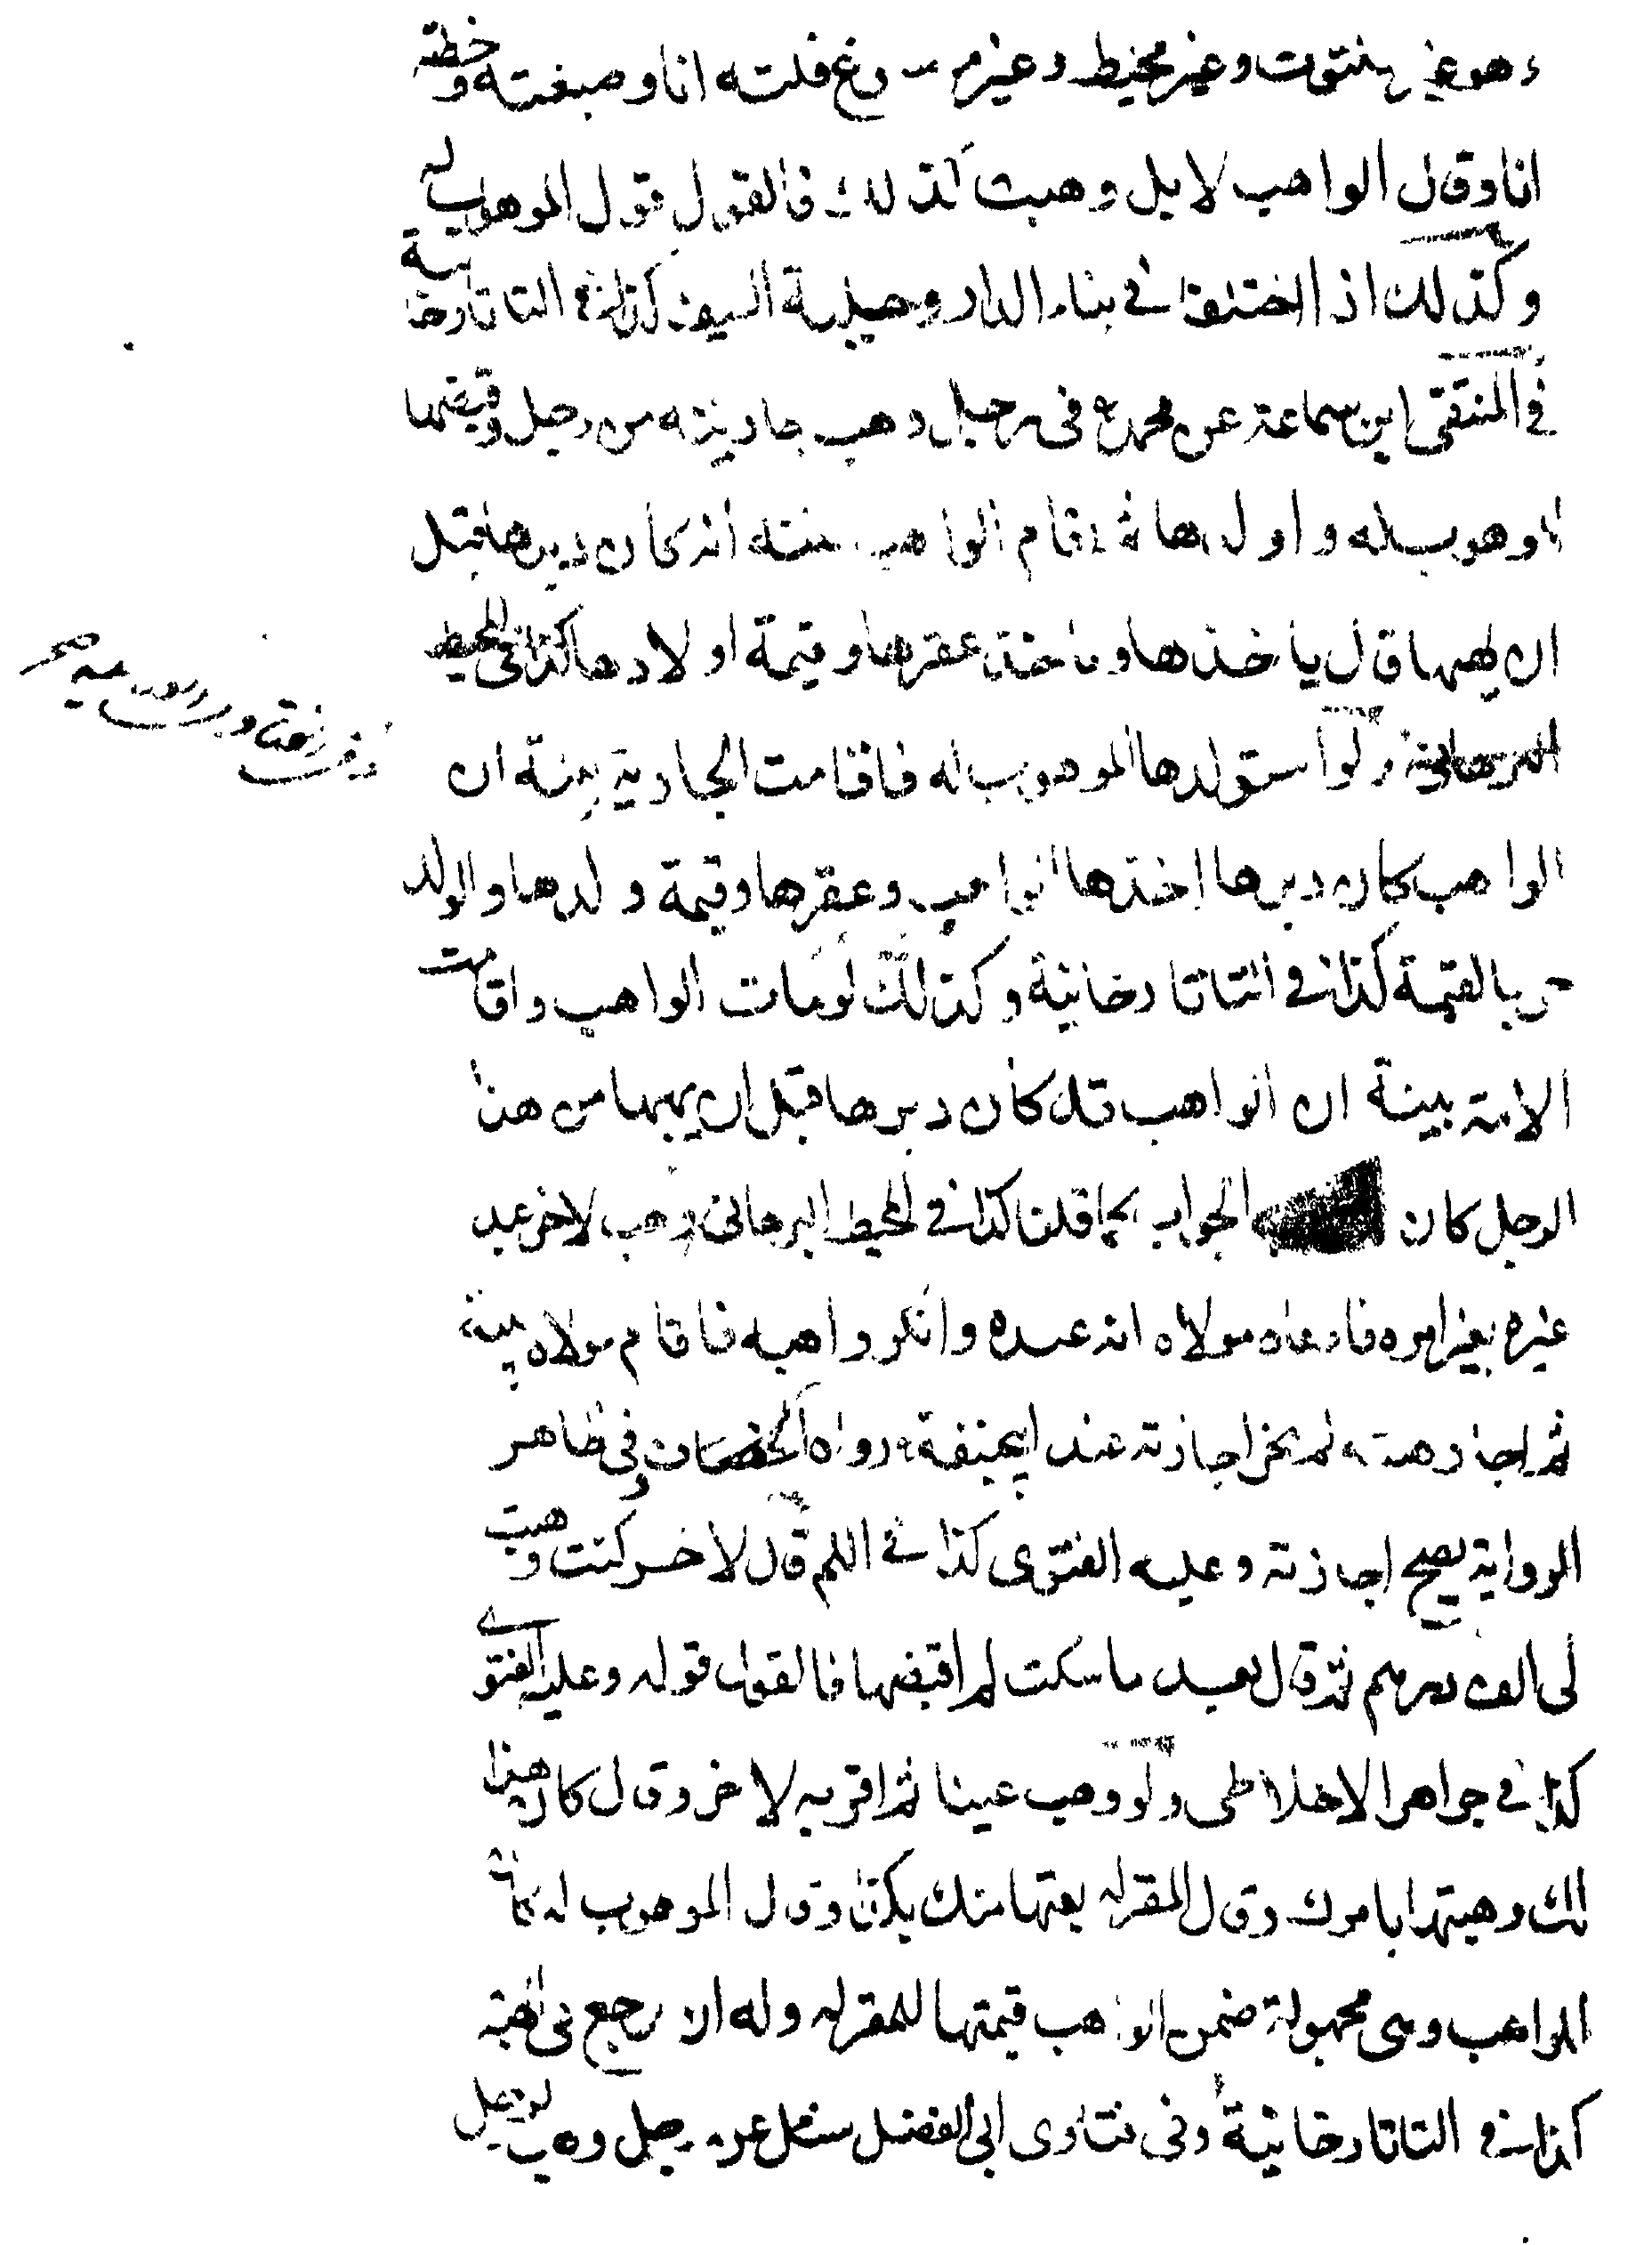 وهو غير ملتوت وغير مخيط وغير مصبوغ فلته انا وصبغته وخطته
انا وقال الواهب لا بل وهبت كذلك فالقول قول الموهوب له
وكذلك اذا اختلفا في بناء الدار وحلية السيف كذا في التاتارخانية
في المنتقى ابن سماعة عن محمد رح في رجل وهب جاريته من رجل وقبضها
الموهوب له واولدها ثم اقام الواهب بينة انه كان دبرها قبل
ان يهبها قال ياخذها وياخذ عقرها وقيمة اولادها كذا في المحيط
البرهاني ولو استولدها الموهوب له فاقامت الجارية بينة ان
الواهب كان دبرها اخذها الواهب وعقرها وقيمة ولدها والولد
حر بالقيمة كذا في التاتارخانية وكذلك لو مات الواهب واقامت
الامة بينة ان الواهب قد كان دبرها قبل ان يهبها من هذا
الرجل كان الجواب كما قلنا كذا في المحيط البرهاني وهب لاخر عبد
غيره بغير امره فادعاه مولاه انه عبده وانكر واهبه فاقام مولاه بينة
ثم اجاز هبته لم يجز اجازته عند ابيحنيفة رواه الخصاف وفي ظاهر
الرواية يصح اجازته وعليه الفتوى كذا في اللم قال لاخر كنت وهبت
لي الف درهم ثم قال بعد ما سكت لم اقبضها فالقول قوله وعليه الفتوى
كذا في جواهر الاخلاطي ولو وهب عينا ثم اقر به لاخر وقال كان هذا
لك وهبتها بامرك وقال المقر له بعتها منك بكذا وقال الموهوب له كانت
للواهب وهي مجهولة ضمن الواهب قيمتها للمقر له وله ان يرجع في الهبة
كذا في التاتارخانية وفي فتاوى ابي الفضل سئل عن رجل وهب لرجل